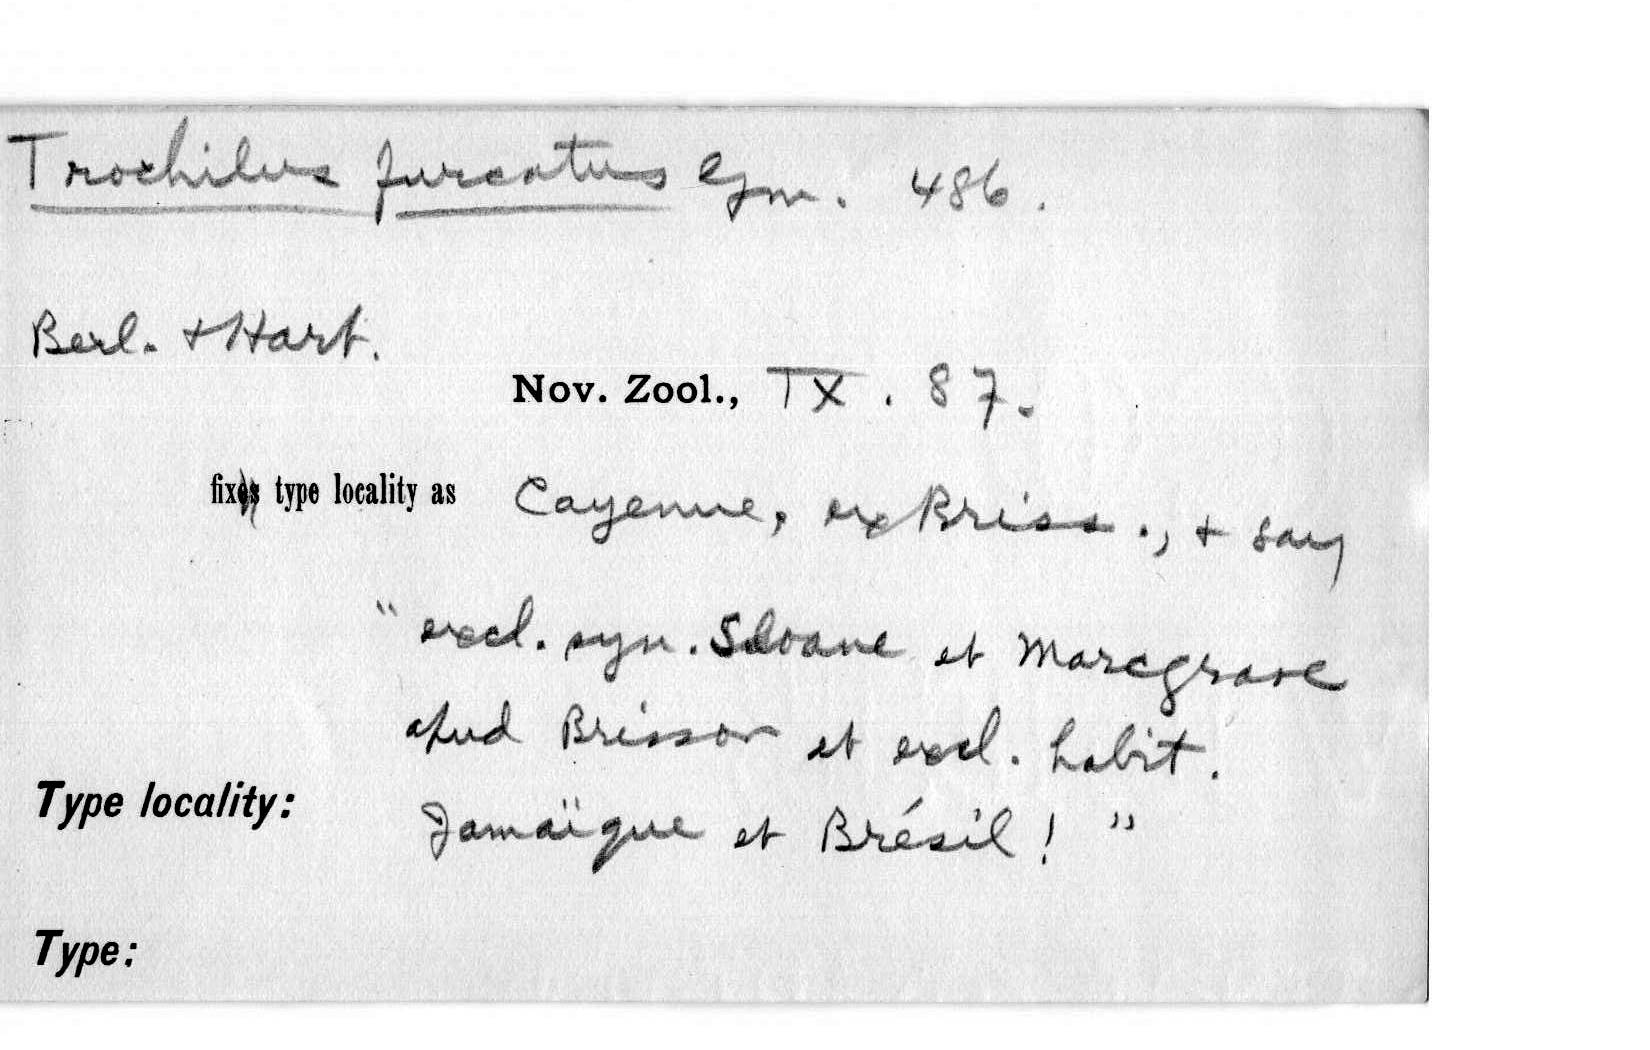 Trochilus furcatus Gm. 486.
Berl. + Hart.
Nov. Zool., IX. 87.
fix type locality as Cayenne, ex Briss., + say
"excl. syn. Sloane et Marcgrave
apud Brisson et excl. habit.
Type locality: Jamaïque et Brésil!"
Type: